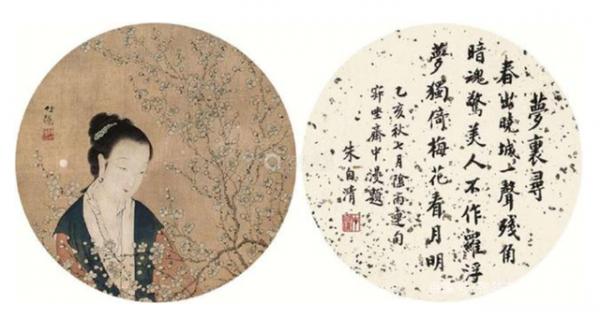 夢裏尋
春出曉城一聲殘角
暗魂驚美人不作羅浮
夢獨倚梅花看月明
乙亥秋七月陰雨連旬
坐齋中漫題
朱自清